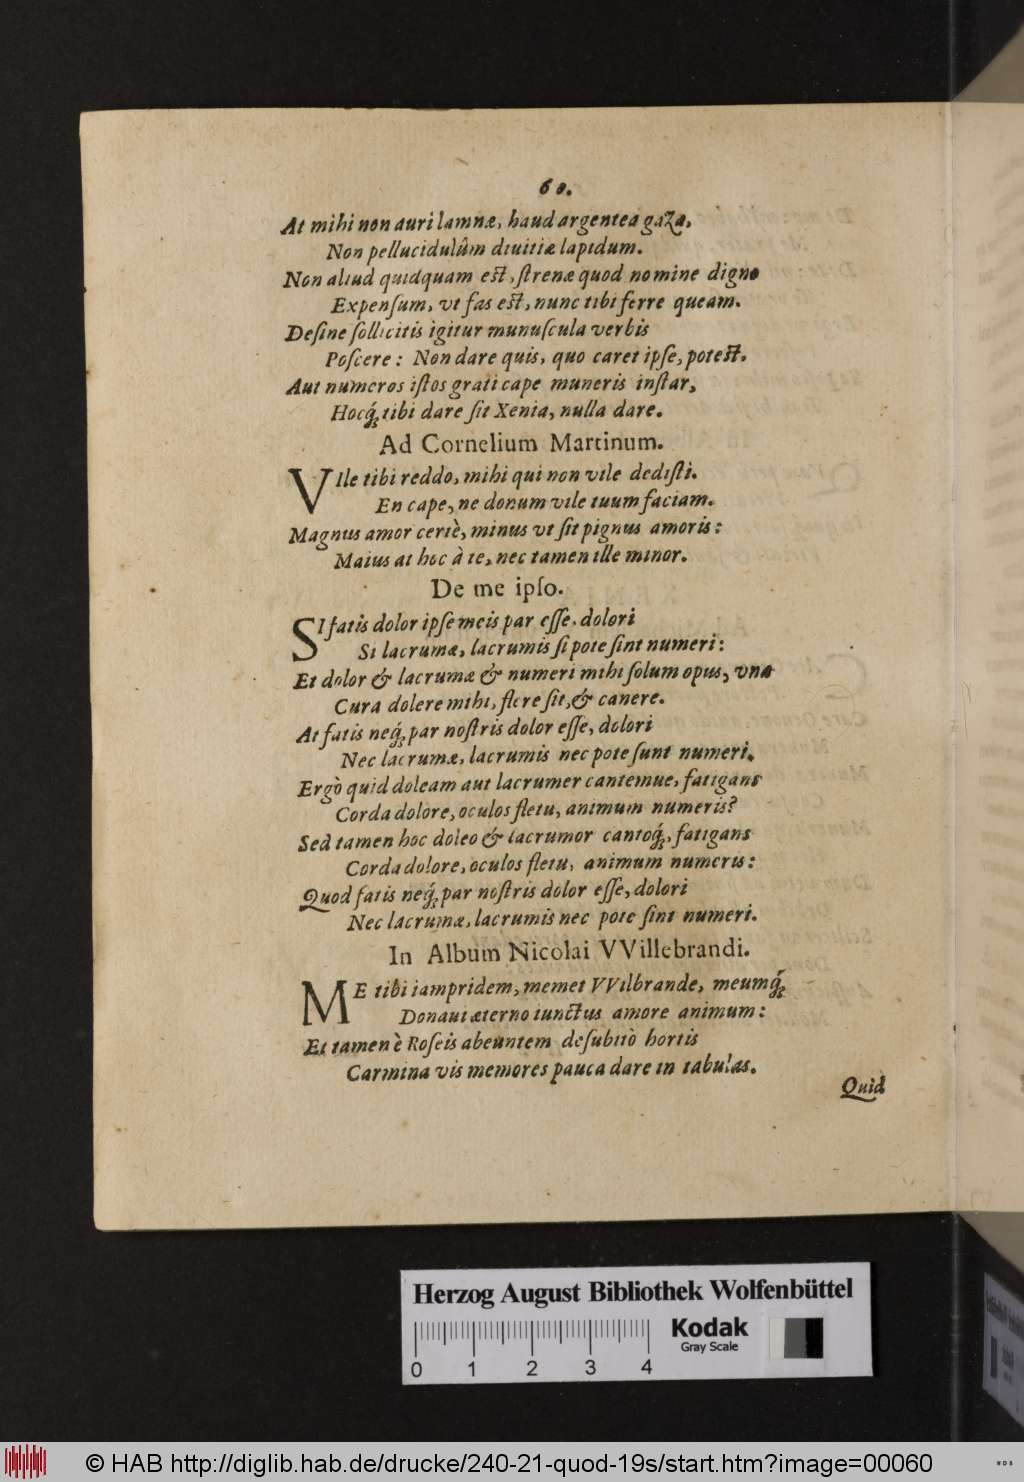 60.
At mihi non auri lamnæ, haud argentea gaza,
Non pellucidulûm diuitiæ lapidum.
Non aliud quidquam est, strenæ quod nomine digno
Expensum, vt fas est, nunc tibi ferre queam.
Desine sollicitis igitur munuscula verbis
Poscere: Non dare quis, quo caret ipse, potest.
Aut numeros istos grati cape muneris instar,
Hocq́; tibi dare sit Xenia, nulla dare.
Ad Cornelium Martinum.
VIle tibi reddo, mihi qui non vile dedisti.
En cape, ne donum vile tuum faciam.
Magnus amor certè, minus vt sit pignus amoris:
Maius at hoc à te, nec tamen ille minor.
De me ipso.
SI fatis dolor ipse meis par esse, dolori
Si lacrumæ, lacrumis si pote sint numeri:
Et dolor & lacrumæ & numeri mihi solum opus, vna
Cura dolere mihi, flere sit, & canere.
At fatis neq́; par nostris dolor esse, dolori
Nec lacrumæ, lacrumis nec pote sunt numeri.
Ergò quid doleam aut lacrumer cantemue, fatigans
Corda dolore, oculos fletu, animum numeris?
Sed tamen hoc doleo & lacrumor cantoq́;, fatigans
Corda dolore, oculos fletu, animum numeris:
Quod fatis neq́; par nostris dolor esse, dolori
Nec lacrumæ, lacrumis nec pote sint numeri.
In Album Nicolai VVillebrandi.
ME tibi iampridem, memet VVilbrande, meumq́;
Donaui æterno iunctus amore animum:
Et tamen è Roseis abeuntem desubitò hortis
Carmina vis memores pauca dare in tabulas.
Quid
Herzog August Bibliothek Wolfenbüttel
Kodak
Gray Scale
0 1 2 3 4
© HAB http://diglib.hab.de/drucke/240-21-quod-19s/start.htm?image=00060